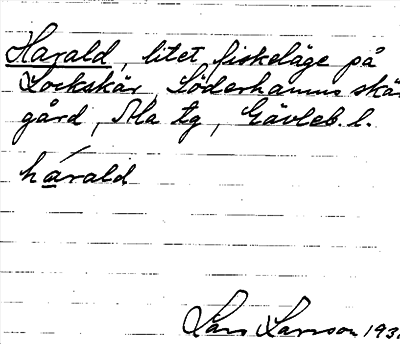 Harald, litet fiskeläge på
Lockskär, Söderhamns skär
gård, Ala tg, Gävleb. l.
hárald
Lars Larsson 193